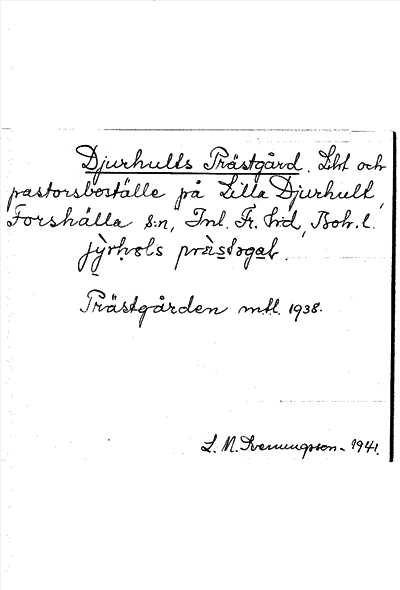 Djurhults Prästgård. Lht och
pastorsboställe på Lilla Djurhult,
Forshälla s:n, Inl. Fr. hd, Boh. l.
Prästgården mtl. 1938.
L. M. Svenungsson - 1941.